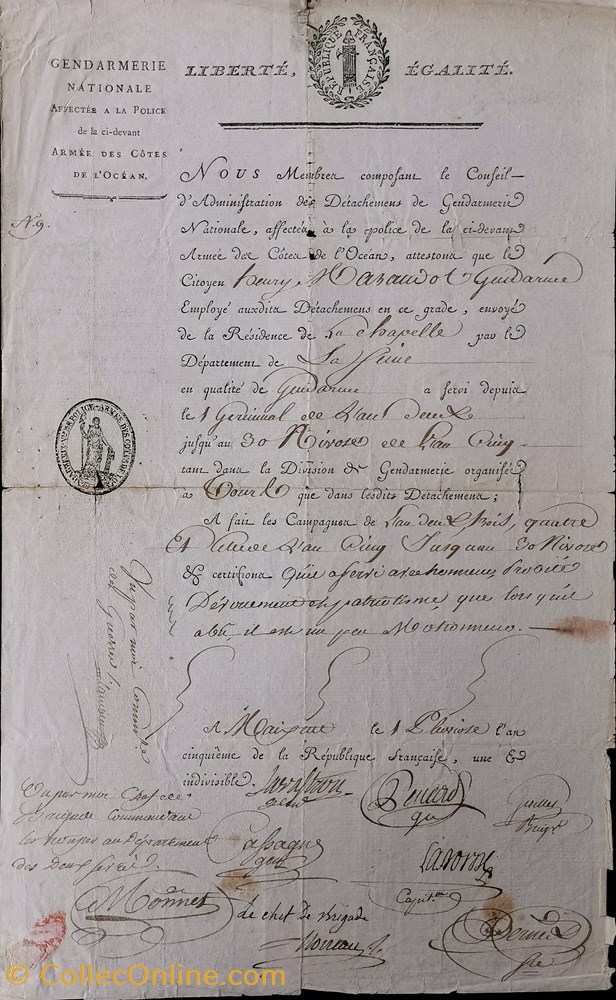 GENDARMERIE
NATIONALE
AFFECTÉE A LA POLICE
de la ci-devant
ARMÉE DES CÔTES
DE L'OCÉAN.
LIBERTÉ, ÉGALITÉ.
RÉPUBLIQUE FRANÇAISE
N. 9.
NOUS Membres composant le Conseil
d'Administration des Détachemens de Gendarmerie
Nationale, affectés à la police de la ci-devant
Armée des Côtes de l'Océan, attestons que le
Citoyen henry Gendarme
Employé auxdits Détachemens en ce grade, envoyé
de la Résidence de La chapelle par le
Département de La Seine
en qualité de Gendarme a servi depuis
le 1 Germinal de L'an deux
jusqu'au 30 Nivose de L'an Cinq
tant dans la Division de Gendarmerie organisée
à Tours que dans lesdits Détachemens;
A fait les Campagnes de L'an deux, trois, quatre
Et Celle de L'an Cinq Jusquau 30 Nivose
& certifions Qu'il a servi avec honneur, Probité
Dévouement et patriotisme que lors quil
a bu il est un peu
A le 1 Pluviose l'an
cinquième de la République française, une &
indivisible.
Vu par moi Commre
des Guerres
Vu par moi Chef de
Brigade Commandant
les troupes au Département
des Deux Sevres
Monnet
Le chef De Brigade
Moreau
Renard
Cassagne
Capitne
© CollecOnline.com